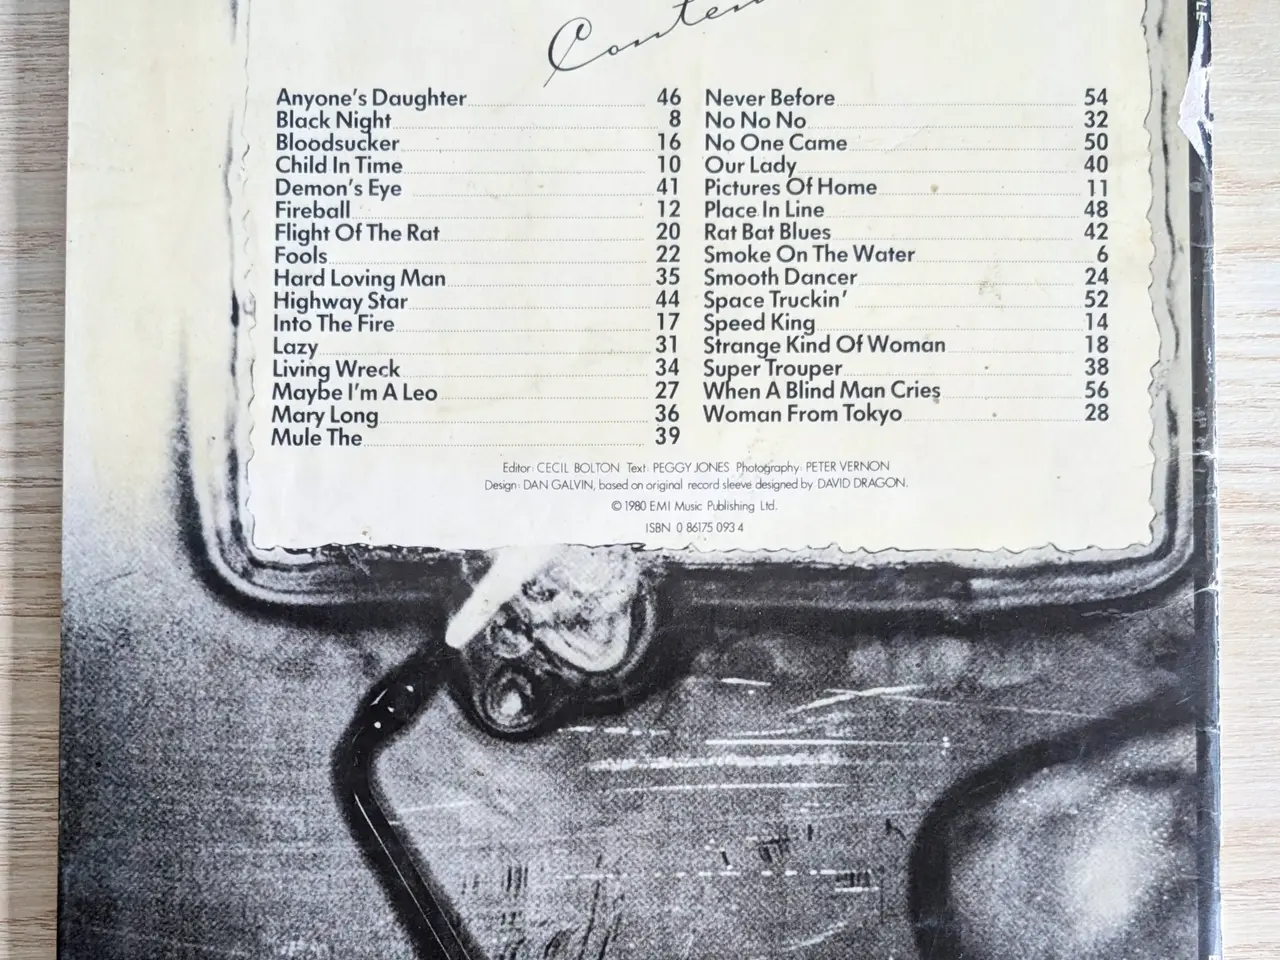 Anyone's Daughter 46
Black Night 8
Bloodsucker 16
Child In Time 10
Demon's Eye 41
Fireball 12
Flight Of The Rat 20
Fools 22
Hard Loving Man 35
Highway Star 44
Into The Fire 17
Lazy 31
Living Wreck 34
Maybe I'm A Leo 27
Mary Long 36
Mule The 39
Never Before 54
No No No 32
No One Came 50
Our Lady 40
Pictures Of Home 11
Place In Line 48
Rat Bat Blues 42
Smoke On The Water 6
Smooth Dancer 24
Space Truckin' 52
Speed King 14
Strange Kind Of Woman 18
Super Trouper 38
When A Blind Man Cries 56
Woman From Tokyo 28
Editor: CECIL BOLTON Text: PEGGY JONES Photography: PETER VERNON
Design: DAN GALVIN, based on original record sleeve designed by DAVID DRAGON.
© 1980 EMI Music Publishing Ltd.
ISBN 0 86175 093 4